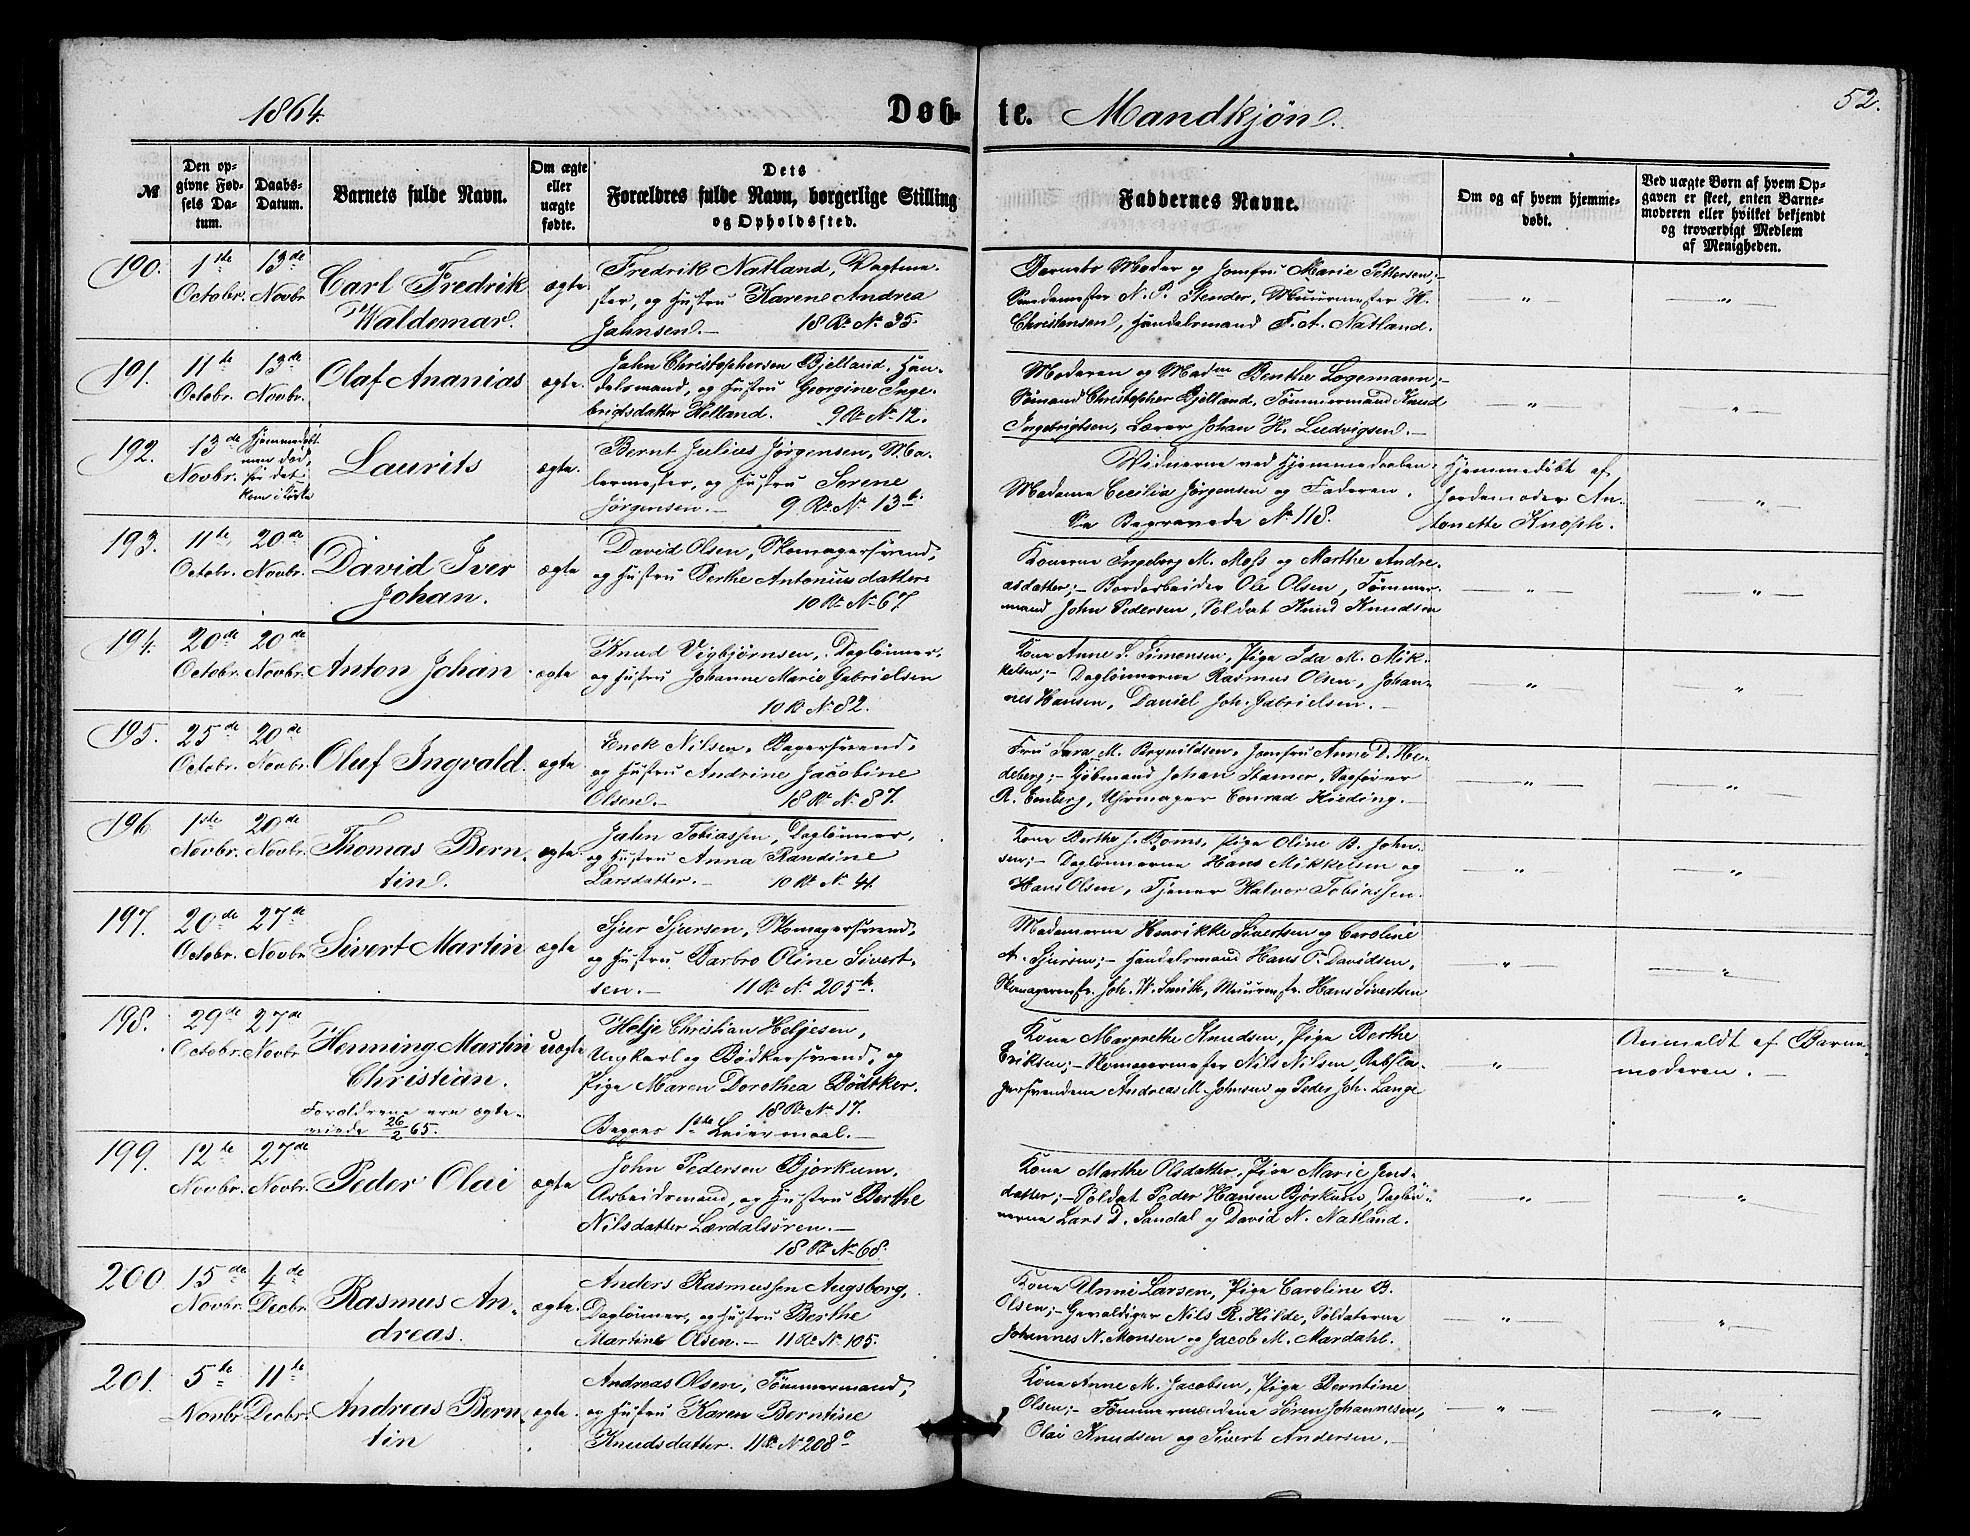 1864.
Døb-
te. Mandkjøn.
52.
№
Den op-
givne Fød-
sels Da-
tum.
Daabs-
Datum.
Barnets fulde Navn.
Om ægte
eller
uægte
fødte.
Dets
Forældres fulde Navn, borgerlige Stilling
og Opholdssted.
Faddernes Navne.
Om og af hvem hjemme-
døbt.
Ved uægte Børn af hvem Op-
gaven er skeet, enten Barne-
moderen eller hvilket bekjendt
og troværdigt Medlem
af Menigheden.
190.
1ste
Octobr.
13de
Novbr.
Carl Fredrik
Waldemar.
ægte
Fredrik Natland, Vagtme-
ster, og Hustru Karene Andrea
Jahnsen.— 18 Rd. N. 35.
Barnets Moder og Jomfru Marie Pettersen;-
Smedemester N. P. Stender, Muurmester H.
Christensen, Handelsmand F. A. Natland.
— „ —
— „ —
191.
11te
Octobr.
13de
Novbr.
Olaf Ananias
ægte.
Jahn Christophersen Bjelland, Han-
delsmand, og Hustru Georgine Inge-
brigsdatter Helland. 9 Rd. N. 12.
Moderen og Madm Benthe Logemann;-
Sømand Christopher Bjelland, Tømmermand Knud
Ingebrigtsen, Lærer Johan H. Ludvigsen.—
— „ —
— „ —
192.
13de
Novbr.
Hjemmedøbt
men død,
før det
kom i Kirke
Laurits
ægte.
Bernt Julius Jørgensen, Ma-
lermester, og Hustru Serene
Jørgensen.— 9 Rd. N. 13b.
Vidnerne ved Hjemmedaaben:
Madame Cecilia Jørgensen og Faderen.
Se Begravede N. 118.
Hjemmedøbt af
Jordemoder An-
tonette Knoph.
— „ —
193.
11te
Octobr.
20de
Novbr.
David Iver
Johan.
ægte
David Olsen, Skomagersvend,
og Hustru Berthe Antoniusdatter.
10 Rd. N. 67
Konerne Ingeborg M. Moss og Marthe Andre-
asdatter;- Bordarbeider Ole Olsen, Tømmer-
mand John Pedersen, Soldat Knud Knudsen
— „ —
— „ —
194.
20de
Octobr.
20de
Novbr.
Anton Johan
ægte
Knud Vigbjørnsen, Daglønner,
og Hustru Johanne Marie Gabrielsen
10 Rd. N. 82.
Kone Anne S. Simonsen, Pige Ida M. Mik-
kelsen;- Daglønnerne Rasmus Olsen, Johan-
nes Hansen, Daniel Joh. Gabrielsen.—
— „ —
— „ —
195.
25de
Octobr.
20de
Novbr.
Oluf Ingvald.
ægte
Enok Nilsen, Bagersvend,
og Hustru Andrine Jacobine
Olsen.— 18 Rd. N. 87.
Fru Sara M. Brynildsen, Jomfru Anne D. He-
deberg;- Kjøbmand Johan Stamer, Sagfører
R. Enberg, Uhrmager Conrad Kieding.—
— „ —
— „ —
196
1ste
Novbr.
20de
Novbr.
Thomas Bern-
tin.
ægte.
Jahn Tobiassen, Daglønner,
og Hustru Anna Randine
Larsdatter.— 10 Rd. N. 41.
Kone Berthe J. Boms, Pige Oline B. John-
sen;- Daglønnerne Hans Mikkelsen og
Hans Olsen, Tjener Halvor Tobiassen.
— „ —
— „ —
197.
20de
Octobr.
27de
Novbr.
Sivert Martin
ægte
Sjur Sjursen, Skomagersvend,
og Hustru Barbro Oline Sivert-
sen.— 11 Rd. N. 205b.
Madamerne Henrikke Sivertsen og Caroline
A. Sjursen;- Handelsmand Hans P. Davidsen,
Skomagermstr. Joh. W. Smith, Muurmstr. Hans Sivertsen
— „ —
— „ —
198.
29de
Octobr.
27de
Novbr.
Henning Martin
Christian.
Forældrene ere ægte-
viede 26/2 65.
uægte
Helje Christian Heljesen,
Ungkarl og Bødkersvend, og
Pige Maren Dorothea Bødtker.
18 Rd. N. 17.
Begges 1ste Leiermaal.—
Kone Margrethe Knudsen, Pige Berthe
Eriksen;- Skomagermester Nils Nilsen, Rebsla-
gersvendene Andreas M. Johnsen og Peder Joh. Lange
„ —
Anmeldt af Barne-
moderen.—
199.
12te
Novbr.
27de
Novbr.
Peder Olai
ægte
John Pedersen Bjorkum,
Arbeidsmand, og Hustru Berthe
Nilsdatter Lærdalsøren.—
18 Rd. N. 68.
Kone Marthe Olsdatter, Pige Marie Jens-
datter;- Soldat Peder Hansen Bjorkum, Dagløn-
nerne Lars D. Sandal og David N. Natland.
— „ —
„
200
15de
Novbr.
4de
Decbr.
Rasmus An-
dreas.
ægte.
Anders Rasmussen Augsborg,
Daglønner, og Hustru Berthe
Martine Olsen.— 11 Rd. N. 105.
Kone Unni Larsen, Pige Caroline B.
Olsen;- Gevaldiger Nils R. Hilde, Soldaterne
Johannes N. Monsen og Jacob M. Mardahl.
— „ —
„ —
201.
5te
Novbr
11te
Decbr.
Andreas Bern-
tin
ægte.
Andreas Olsen, Tømmermand,
og Hustru Karen Berntine
Knudsdatter. 11 Rd. N. 208a
Kone Anne M. Jacobsen, Pige Berntine
Olsen;- Tømmermændene Søren Johannesen,
Olai Knudsen og Sivert Andersen.—
— „ —
— „ —